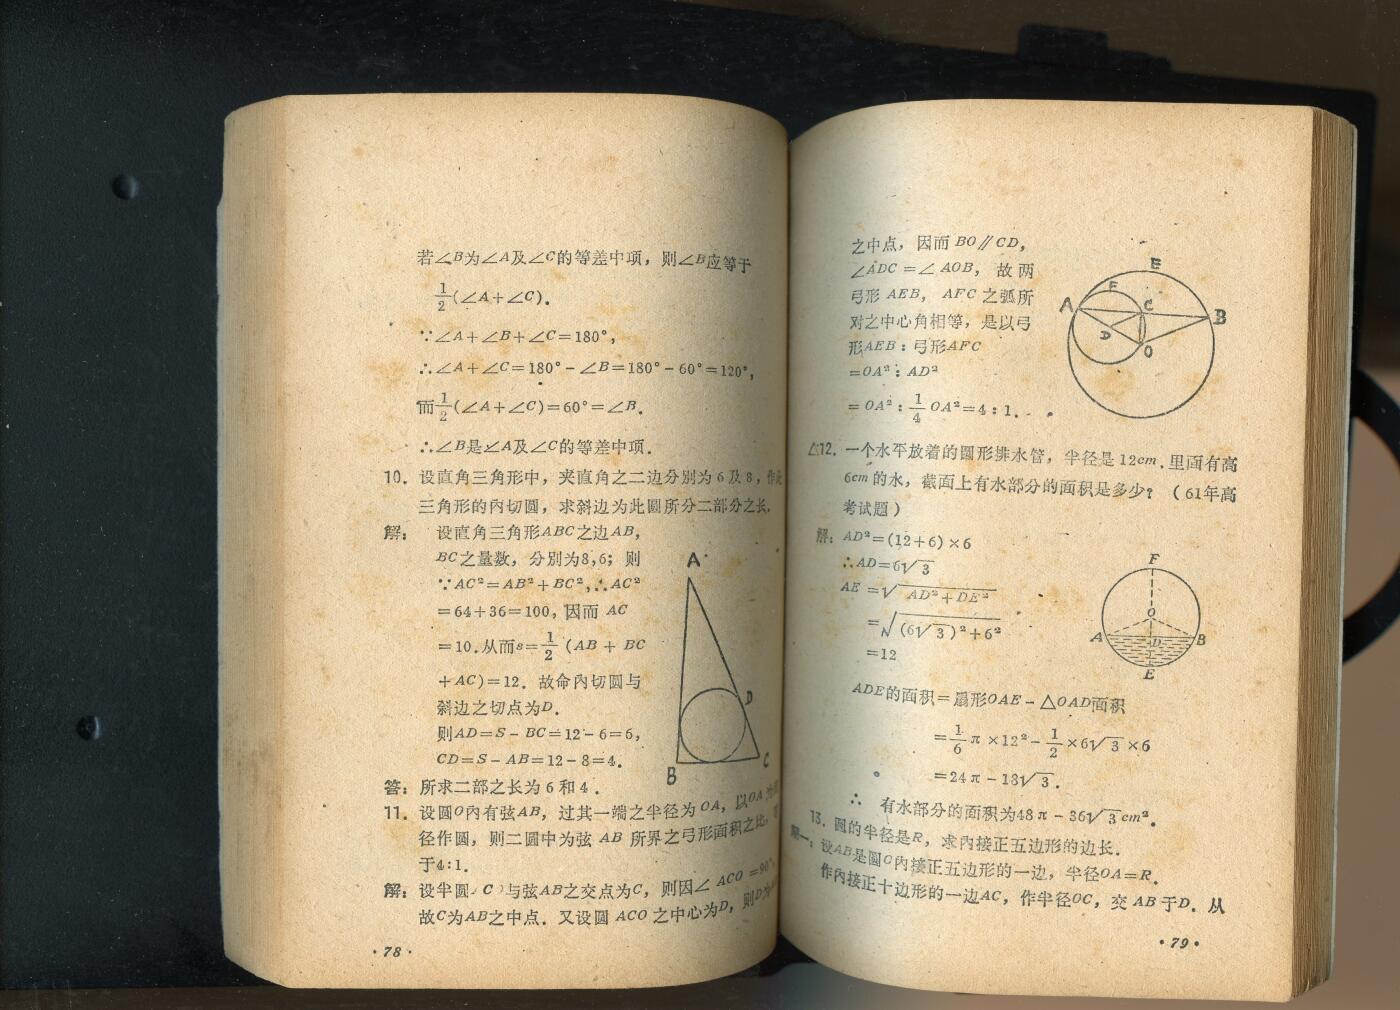 若∠B为∠A及∠C的等差中项，则∠B应等于
1/2(∠A+∠C).
∵∠A+∠B+∠C=180°，
∴∠A+∠C=180°-∠B=180°-60°=120°，
而1/2(∠A+∠C)=60°=∠B.
∴∠B是∠A及∠C的等差中项.
10. 设直角三角形中，夹直角之二边分别为6及8，作此
三角形的内切圆，求斜边为此圆所分二部分之长.
解： 设直角三角形ABC之边AB，
BC之量数，分别为8,6；则
∵AC²=AB²+BC²，∴AC²
=64+36=100，因而 AC
=10.从而s=1/2 (AB + BC
+AC)=12. 故命内切圆与
斜边之切点为D.
则AD=S-BC=12-6=6，
CD=S-AB=12-8=4.
A
D
B
C
答：所求二部之长为6和4.
11. 设圆O内有弦AB，过其一端之半径为OA，以OA为
径作圆，则二圆中为弦 AB 所界之弓形面积之比，
于4:1.
解：设半圆 C 与弦AB之交点为C，则因∠ACO=90°，
故C为AB之中点. 又设圆 ACO 之中心为D，则D为
·78·
之中点，因而 BO∥CD，
∠ADC=∠AOB，故两
弓形 AEB，AFC 之弧所
对之中心角相等，是以弓
形AEB：弓形AFC
=OA²：AD²
=OA²：1/4 OA²=4：1.
E
F
A
C
B
D
O
△12. 一个水平放着的圆形排水管，半径是12cm.里面有高
6cm的水，截面上有水部分的面积是多少？（61年高
考试题）
解：AD²=(12+6)×6
∴AD=6√3
AE=√(AD²+DE²)
=√((6√3)²+6²)
=12
F
O
A
D
B
E
ADE的面积=扇形OAE-△OAD面积
=1/6 π×12²-1/2×6√3×6
=24π-18√3.
∴ 有水部分的面积为48π-36√3cm².
13. 圆的半径是R，求内接正五边形的边长.
解一：设AB是圆O内接正五边形的一边，半径OA=R.
作内接正十边形的一边AC，作半径OC，交AB于D. 从
·79·